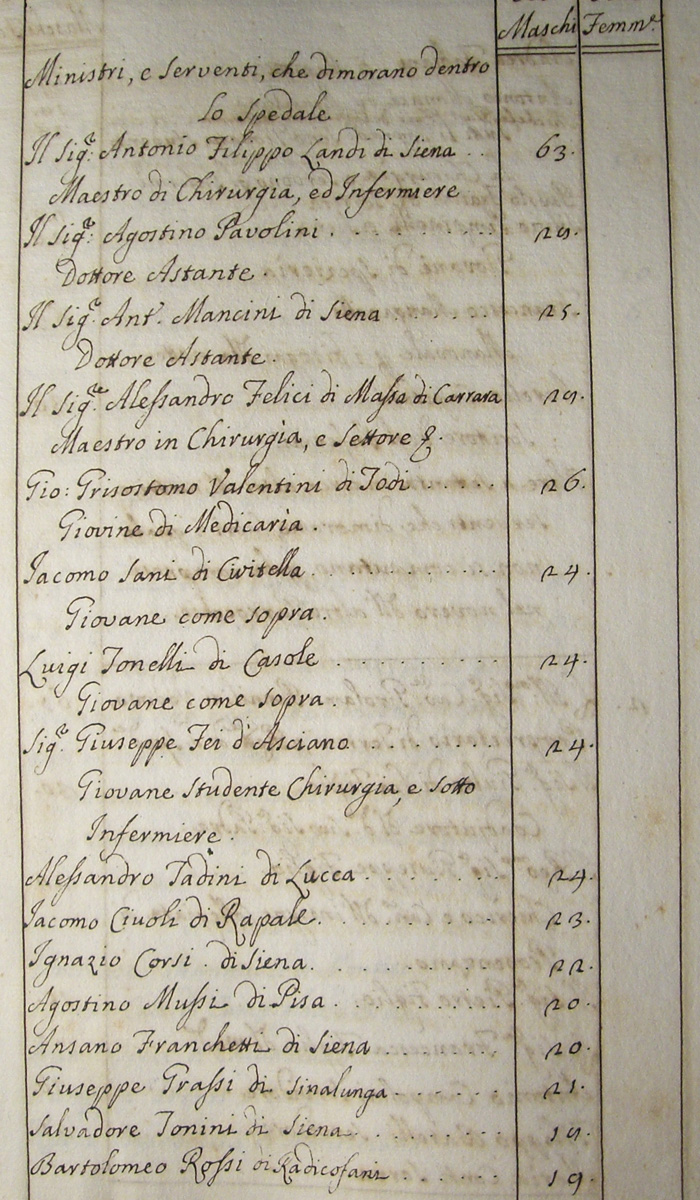 Maschi Femm.e
Ministri, e Serventi, che dimorano dentro
lo Spedale
Il Sig.r Antonio Filippo Landi di Siena . . 63.
Maestro di Chirurgia, ed Infermiere
Il Sig.r Agostino Pavolini . . . . . . . . 29.
Dottore Astante .
Il Sig.r Ant.o Mancini di Siena . . . . . . 25.
Dottore Astante .
Il Sig.re Alessandro Felici di Massa di Carrara 29.
Maestro in Chirurgia, e Settore
Gio: Grisostomo Valentini di Todi . . . . . 26.
Giovine di Medicaria .
Iacomo Sani di Civitella . . . . . . . . 24.
Giovane come sopra .
Luigi Tonelli di Casole . . . . . . . . 24.
Giovane come sopra .
Sig.r Giuseppe Fei d'Asciano . . . . . . . 24.
Giovane Studente Chirurgia, e sotto
Infermiere .
Alessandro Tadini di Lucca . . . . . . . 24.
Iacomo Civoli di Rapale . . . . . . . . 23.
Ignazio Corsi . di Siena . . . . . . . . 22.
Agostino Mussi di Pisa . . . . . . . . 20.
Ansano Franchetti di Siena . . . . . . . 20.
Giuseppe Grassi di Sinalunga . . . . . . 21.
Salvadore Tonini di Siena . . . . . . . 19.
Bartolomeo Rossi di Radicofani . . . . . . 19.